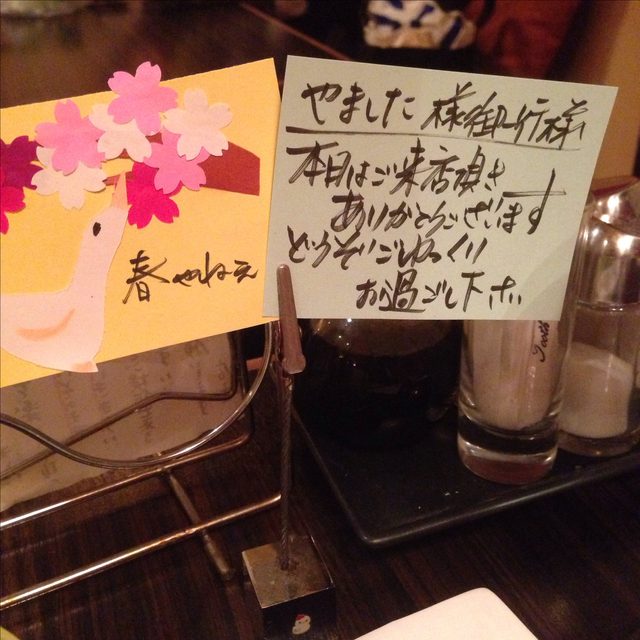 春やねぇ
やました様御一行様
本日はご来店頂き
ありがとうございます
どうぞごゆっくり
お過ごし下さい